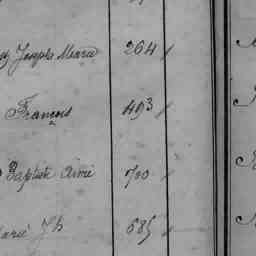 Joseph Marie 264
François 493
Baptiste Aimé 700
Marie Jh 685